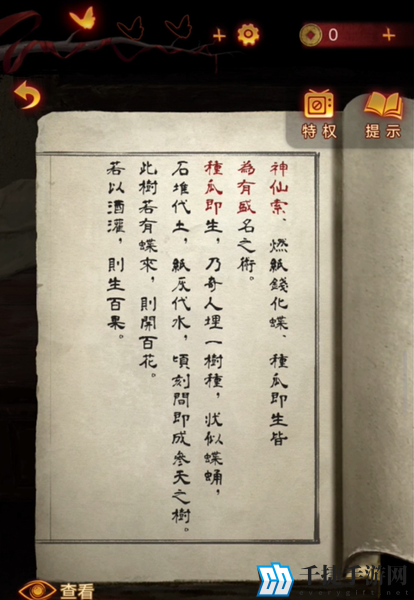 0
特权
提示
神仙索、燃紙錢化蝶、種瓜即生皆
為有盛名之術。
種瓜即生，乃奇人埋一樹種，狀似蝶蛹，
石堆代土，紙灰代水，頃刻間即成參天之樹。
此樹若有蝶來，則開百花。
若以酒灌，則生百果。
查看
千提手游网